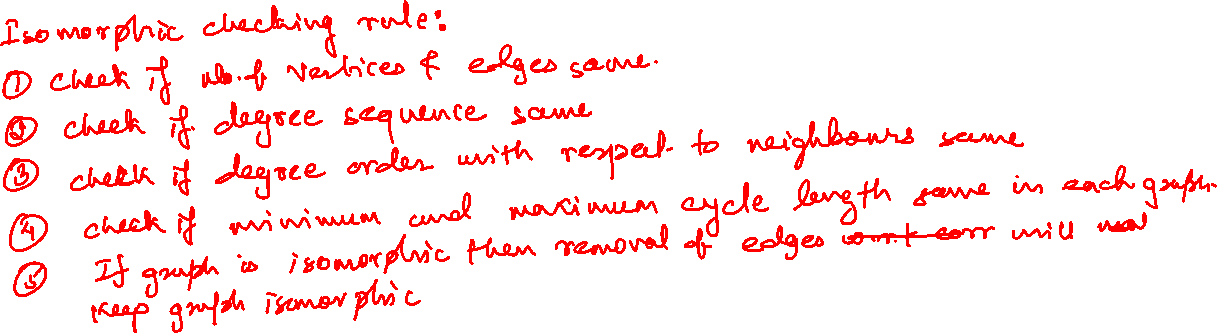 Isomorphic checking rule:
① check if no. of vertices & edges same.
② check if degree sequence same
③ check if degree order with respect to neighbours same
④ check if minimum and maximum cycle length same in each graph.
⑤ If graph is isomorphic then removal of edges will
keep graph isomorphic